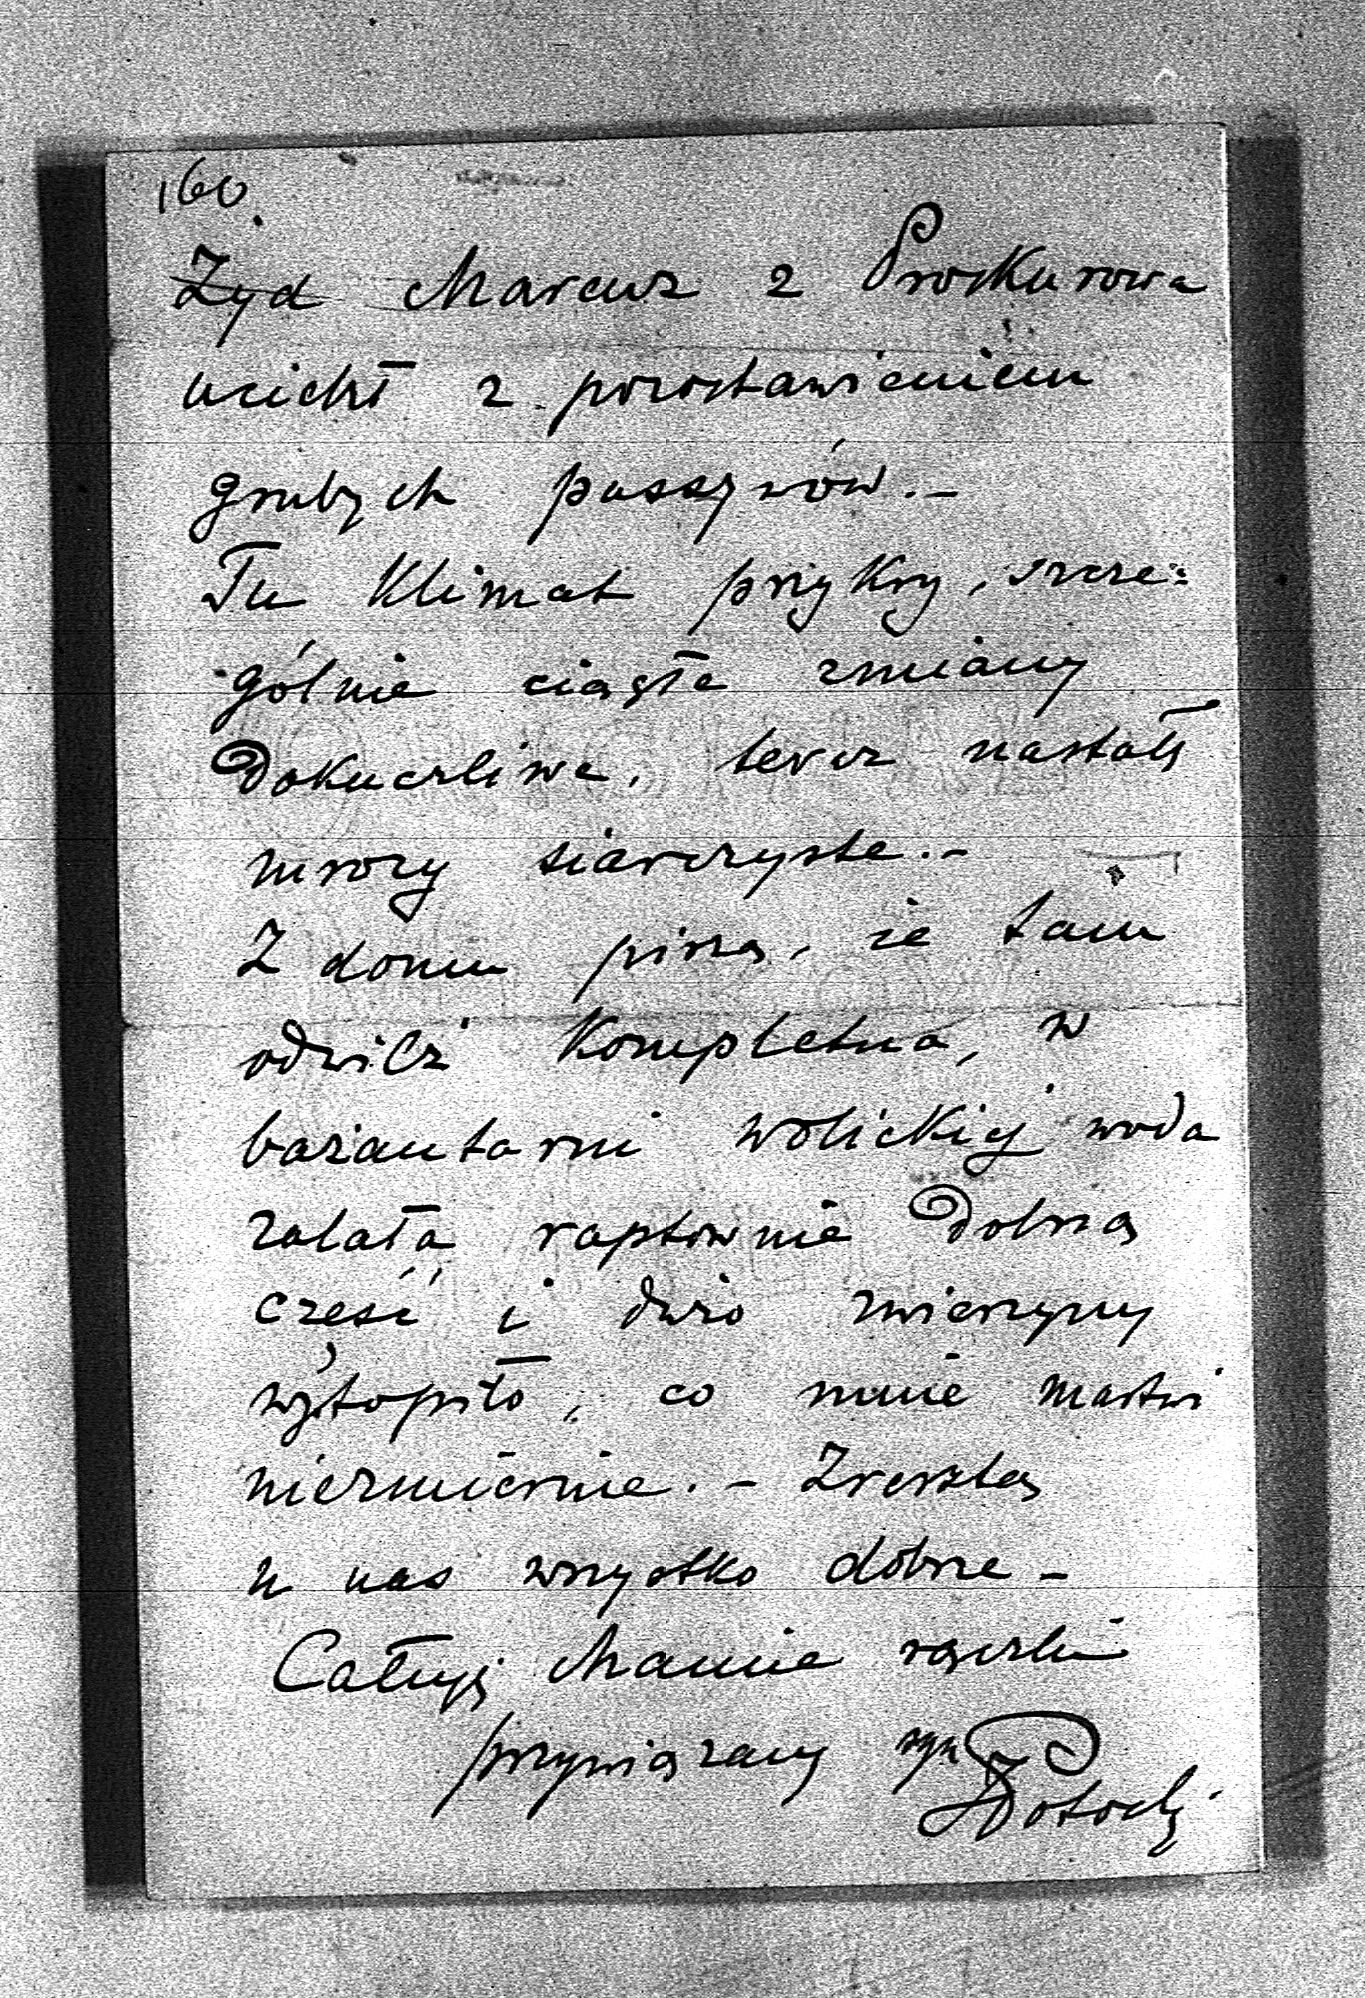 160.
Żyd Marcus z Proskurowa
uciekł z pozostawieniem
grubych passywów. –
Tu Klimat przykry, szcze=
gólnie ciągłe zmiany
dokuczliwe, teraz nastały
mrozy siarczyste. –
Z domu piszą, że tam
odwilż Kompletna, w
bażantarni wolickiej woda
zalała raptownie dobrą
cześć i dużo zwierzyny
wytopiło, co mnie martwi
niezmiernie. – Zresztą
u nas wszystko dobrze –
Całuję Mamie rączki
przywiązany syn
Potocki